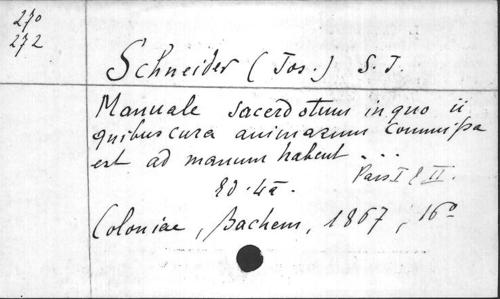 270
272
Schneider (Jos.) S. J
Manuale sacerdotum in quo ii
quibus cura animarum commissa
est ad manum habent ...
Pars I & II.
Ed. 4a.
Coloniae, Bachem, 1867, 16o